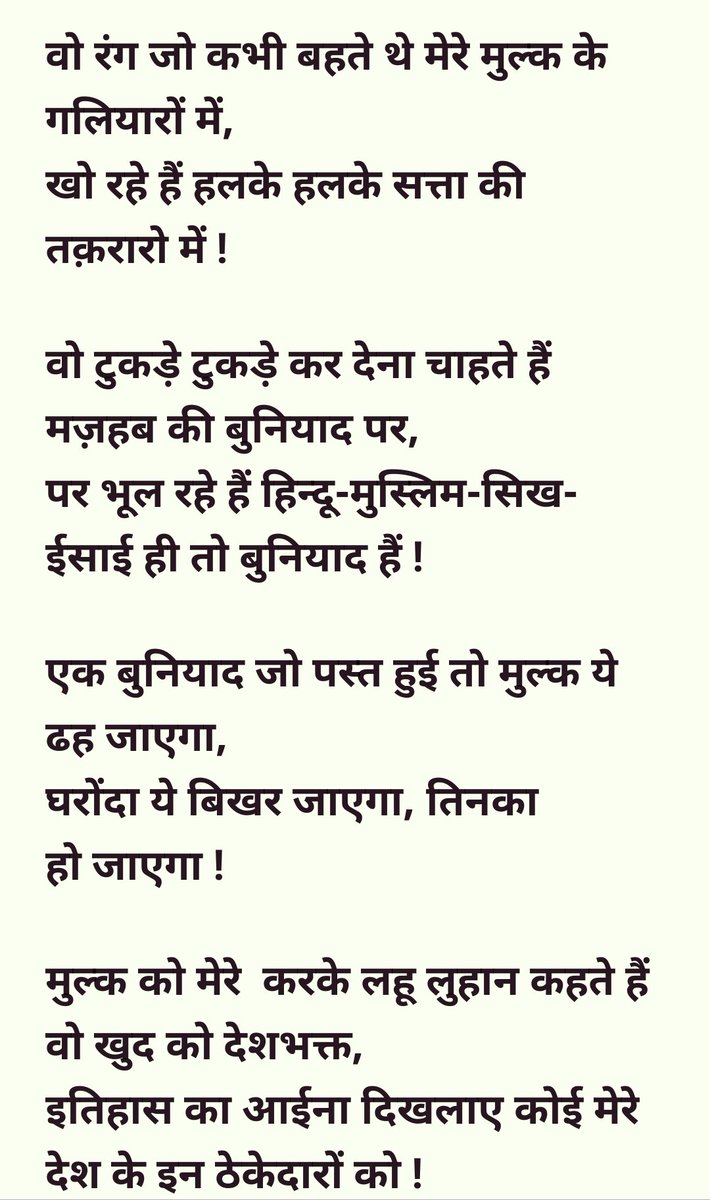 वो रंग जो कभी बहते थे मेरे मुल्क के
गलियारों में,
खो रहे हैं हलके हलके सत्ता की
तक़रारो में !
वो टुकड़े टुकड़े कर देना चाहते हैं
मज़हब की बुनियाद पर,
पर भूल रहे हैं हिन्दू-मुस्लिम-सिख-
ईसाई ही तो बुनियाद हैं !
एक बुनियाद जो पस्त हुई तो मुल्क ये
ढह जाएगा,
घरोंदा ये बिखर जाएगा, तिनका
हो जाएगा !
मुल्क को मेरे  करके लहू लुहान कहते हैं
वो खुद को देशभक्त,
इतिहास का आईना दिखलाए कोई मेरे
देश के इन ठेकेदारों को !